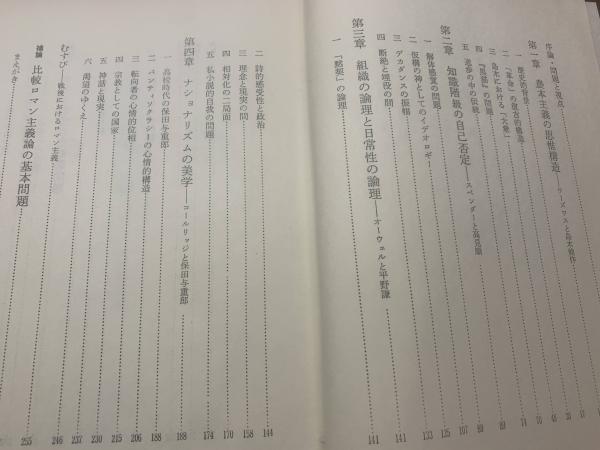 序論・問題と視点 3
第一章 農本主義の思惟構造――ワーズワスと島木健作 17
一 歴史的背景
二 「革命」の復古的構造 35
三 島木における「大衆」 45
四 『黒猫』の問題
五 進歩の中の伝統 70
第二章 知識階級の自己否定――スペンダーと高見順 89
一 解体感覚の問題 89
二 仮構の神としてのイデオロギー 107
三 デカダンスの振幅 125
四 断絶と埋没の間 133
第三章 組織の論理と日常性の論理――オーウェルと平野謙 141
一 『黙契』の論理 141
二 詩的感受性と政治 144
三 理念と現実の間 158
四 相対化の二局面 170
五 私小説的自我の問題 174
第四章 ナショナリズムの美学――コールリッジと保田与重郎 188
一 高校時代の保田与重郎 188
二 パンティソクラシーの心情的構造 206
三 転向者の心情的位相 215
四 宗教としての国家 230
五 神話と現実 237
六 渇望のゆくえ
むすび――戦後におけるロマン主義 246
補論 比較ロマン主義論の基本問題 255
まえがき